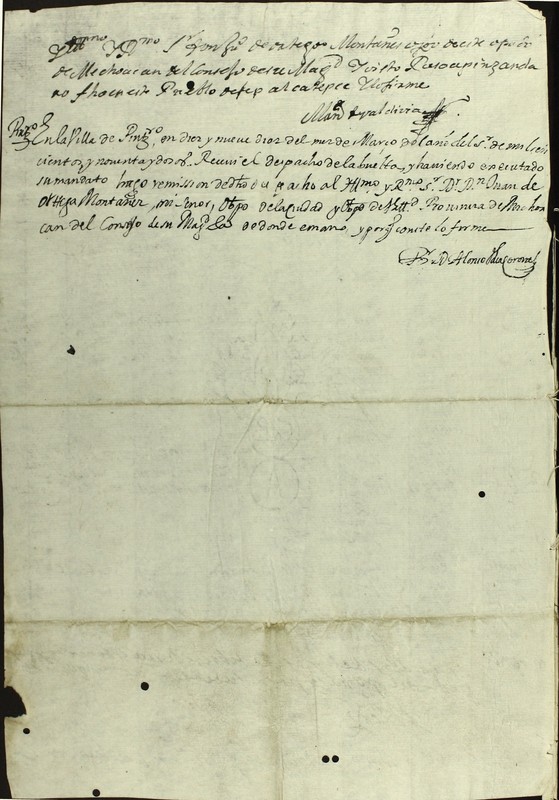 Yll.mo Y R.mo S.r Don Ju.o de ortega Montañes obpo de este obpdo
de Mechoacan del Consejo de su Mag.d Y
fho en este Pueblo de tepalcatepec Y lo firme
Man.l de valdivia
En la Villa de Pinz.ro, en diez y nueve dias del mes de Marzo del año del S.r de mil seis
cientos y noventa y dos a.s Recivi el despacho de la buelta, y haviendo executado
su mandato hago remission de dho despacho al Yll.mo y R.mo S.r D.r D.n Juan de
ortega Montañez, mi Señor, Obpo de la ciudad y Obpdo de Vall.d Provincia de Mechoa
can del Consejo de su Mag.d de donde emano, y porq conste lo firme
B.r D. Alonso de la Corona